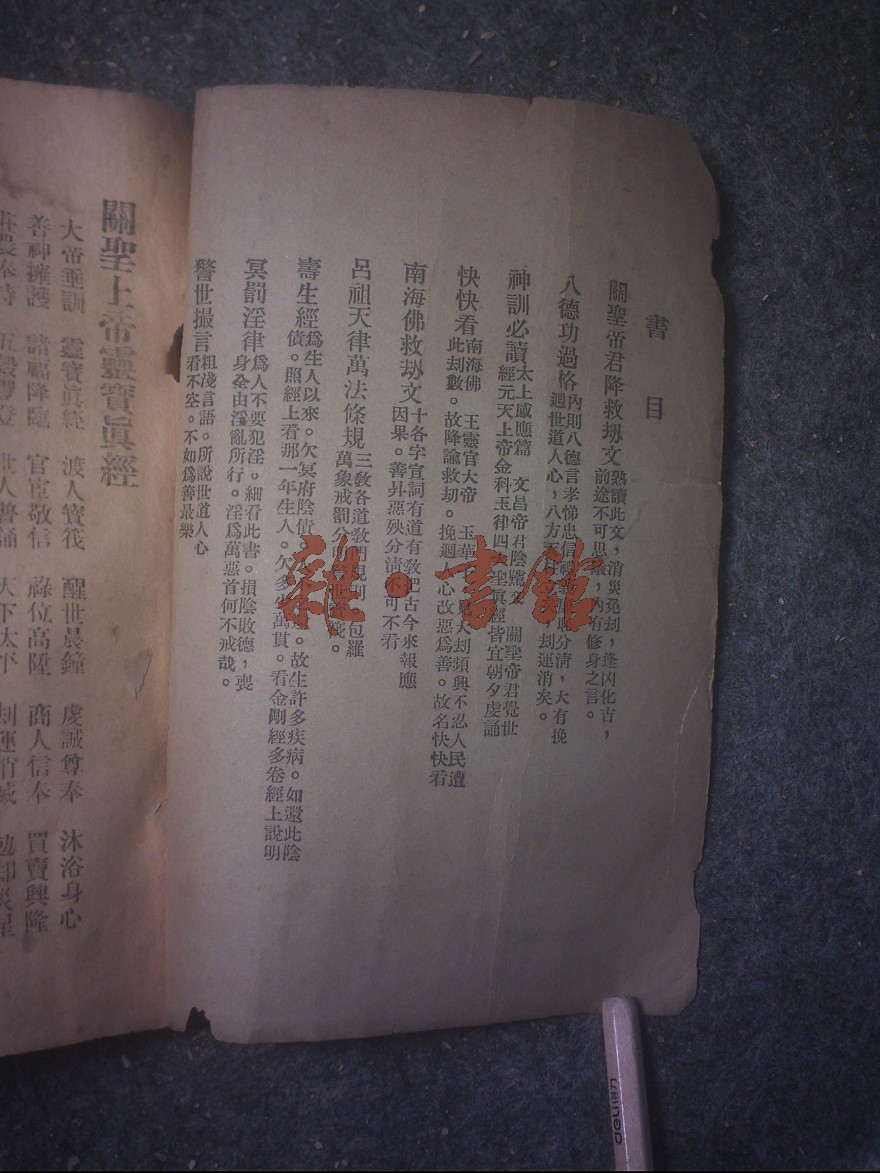 書目
關聖帝君降救刼文 熟讀此文，消災免刦，逢凶化吉，
前途不可思議，內有修身之言。
八德功過格 內則八德言孝悌忠信禮義廉恥分清，大有挽
迴世道人心，八方 刦運消矣。
神訓必讀 太上感應篇 文昌帝君陰騭文 關聖帝君覺世
經元天上帝金科玉律四 聖眞經皆宜朝夕虔誦
快快看 南海佛 王靈官大帝 玉華 大刦頻興不忍人民遭
此刦數。故降諭救刦。挽迴人心改惡爲善。故名快快看
南海佛救刼文 十各字宣詞有道有敎把古今來報應
因果。善昇惡殃分清不可不看
呂祖天律萬法條規 三敎各道敎門規則 包羅
萬象戒罰分
壽生經 爲生人以來。欠冥府陰債 故生許多疾病。如還此陰
債。照經上看那一年生人。欠多少萬貫。看金剛經多卷經上說明
冥罰淫律 爲人不要犯淫。細看此書。損陰敗德，喪
身全由淫亂所行。淫爲萬惡首何不戒哉。
警世撮言 粗淺言語。所說世道人心
看不空。不如爲善最樂
關聖上帝靈寶眞經
大帝垂訓 靈寶眞經 渡人寶筏 醒世晨鐘 虔誠尊奉 沐浴身心
善神擁護 諸福降臨 官宦敬信 祿位高陞 商人信奉 買賣興隆
奉持 五穀豐登 世人普誦 天下太平 刦運消滅
雜·書館
deli得力